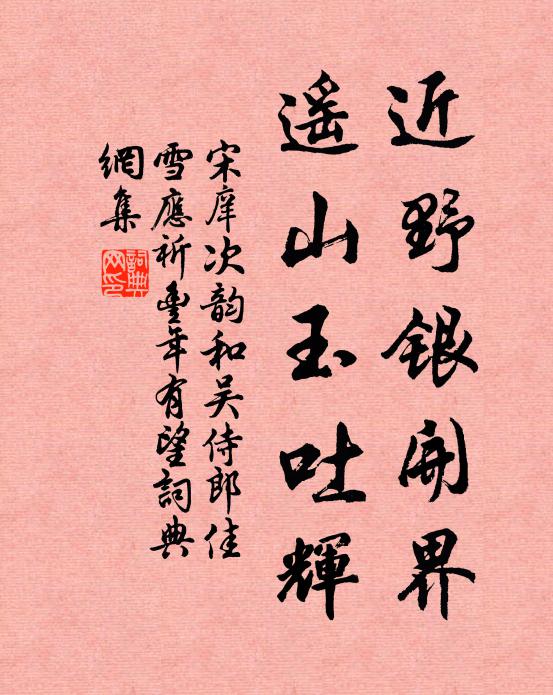 近野銀開界
遥山玉吐輝
宋庠次韵和吴侍郎佳
雪應祈豊年有望詞典
網集
詞典
网印